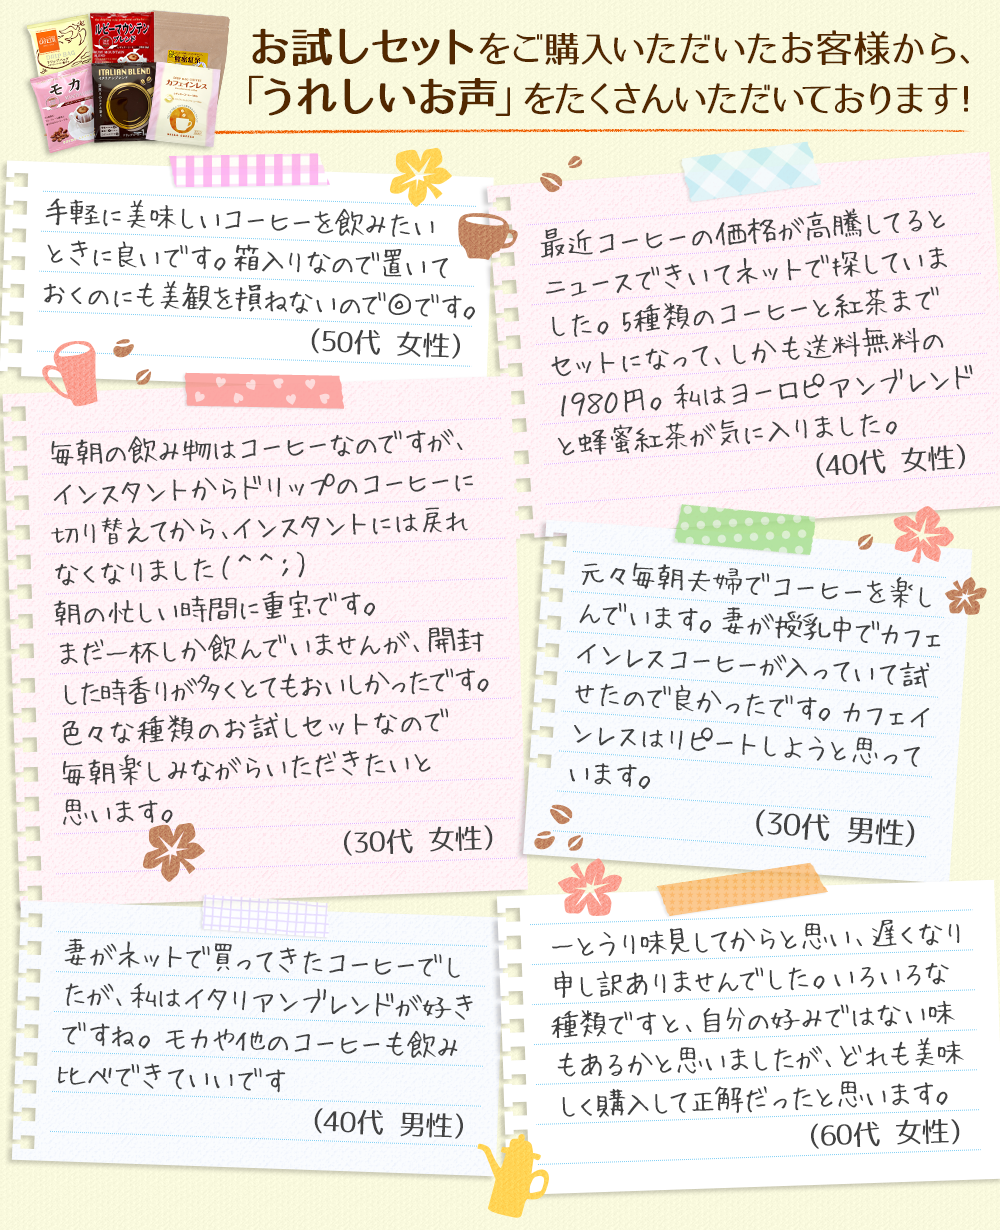 お試しセットをご購入いただいたお客様から、
「うれしいお声」をたくさんいただいております！
ルビーマウンテン
ブレンド
モカ
ITALIAN BLEND
カフェインレス
手軽に美味しいコーヒーを飲みたい
ときに良いです。箱入りなので置いて
おくのにも美観を損ねないので◎です。
(50代 女性)
最近コーヒーの価格が高騰してると
ニュースできいてネットで探していま
した。5種類のコーヒーと紅茶まで
セットになって、しかも送料無料の
1980円。私はヨーロピアンブレンド
と蜂蜜紅茶が気に入りました。
(40代 女性)
毎朝の飲み物はコーヒーなのですが、
インスタントからドリップのコーヒーに
切り替えてから、インスタントには戻れ
なくなりました(^^;)
朝の忙しい時間に重宝です。
まだ一杯しか飲んでいませんが、開封
した時香りが多くとてもおいしかったです。
色々な種類のお試しセットなので
毎朝楽しみながらいただきたいと
思います。
(30代 女性)
元々毎朝夫婦でコーヒーを楽し
んでいます。妻が授乳中でカフェ
インレスコーヒーが入っていて試
せたので良かったです。カフェイ
ンレスはリピートしようと思って
います。
(30代 男性)
妻がネットで買ってきたコーヒーでし
たが、私はイタリアンブレンドが好き
ですね。モカや他のコーヒーも飲み
比べできていいです
(40代 男性)
一とうり味見してからと思い、遅くなり
申し訳ありませんでした。いろいろな
種類ですと、自分の好みではない味
もあるかと思いましたが、どれも美味
しく購入して正解だったと思います。
(60代 女性)